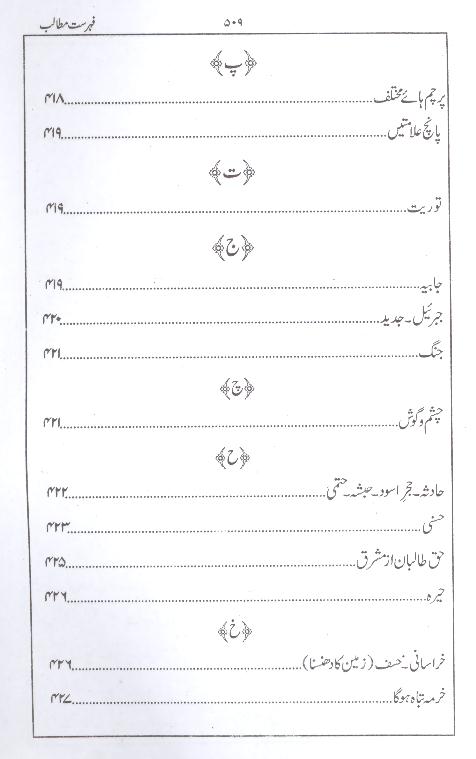 فہرست مطالب ۵۰۹
﴿پ﴾
پرچم ہائے مختلف ۴۱۸
پانچ علامتیں ۴۱۹
﴿ت﴾
توریت ۴۱۹
﴿ج﴾
جابیہ ۴۱۹
جبرئیل۔جدید ۴۲۰
جنگ ۴۲۱
﴿چ﴾
چشم وگوش ۴۲۱
﴿ح﴾
حادثہ۔حجرِ اسود۔حبشہ۔حتمی ۴۲۲
حسنی ۴۲۳
حق طالبان از مشرق ۴۲۵
حیرہ ۴۲۶
﴿خ﴾
خراسانی۔خسف (زمین کا دھنسنا) ۴۲۶
خرمہ تباہ ہوگا ۴۲۷